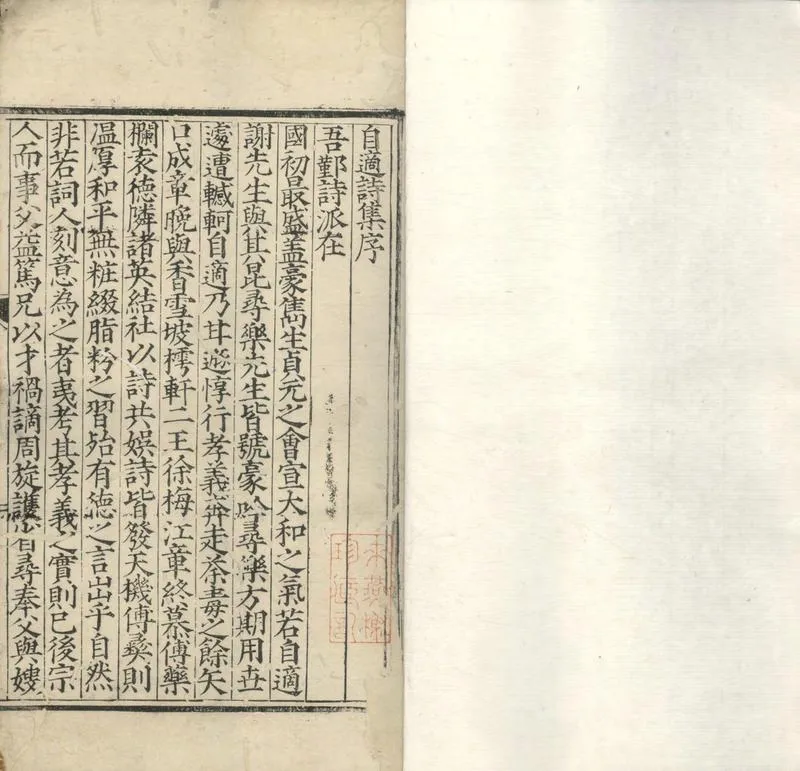 自適詩集序
吾鄞詩派在
國初最盛盖豪雋生貞元之會宣大和之氣若自適
謝先生與其昆尋樂先生皆號豪吟尋樂方期用世
遽遭轗軻自適乃甘遯惇行孝義奔走荼毒之餘矢
口成章晚與香雪坡樗軒二王徐梅江章終慕傅藥
欄袁德隣諸英結社以詩共娛詩皆發天機傅彜則
温厚和平無粧綴脂粉之習殆有德之言出乎自然
非若詞人刻意為之者夷考其孝義之實則已後宗
人而事父益篤兄以才禍謫周旋護
尋奉父與嫂